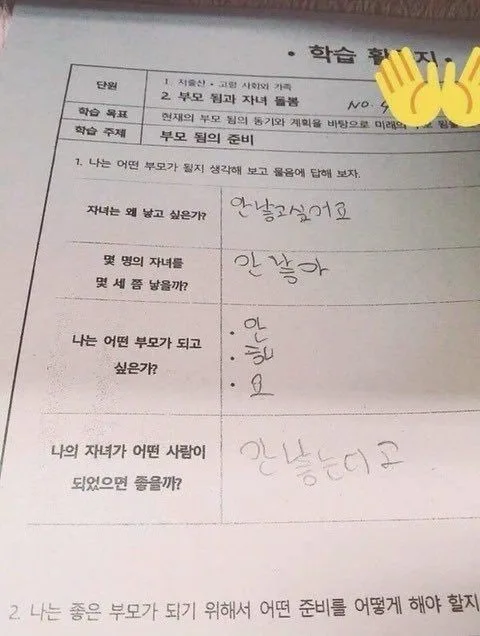 • 학습 활 지 •
단원
1. 저출산 • 고령 사회와 가족
2. 부모 됨과 자녀 돌봄 NO.
학습 목표 현재의 부모 됨의 동기와 계획을 바탕으로 미래의
학습 주제 부모 됨의 준비
1. 나는 어떤 부모가 될지 생각해 보고 물음에 답해 보자.
자녀는 왜 낳고 싶은가? 안낳고싶어요
몇 명의 자녀를
몇 세 쯤 낳을까?
안 낳아
나는 어떤 부모가 되고
싶은가?
• 안
• 해
• 요
나의 자녀가 어떤 사람이
되었으면 좋을까?
안 낳는다고
2. 나는 좋은 부모가 되기 위해서 어떤 준비를 어떻게 해야 할지